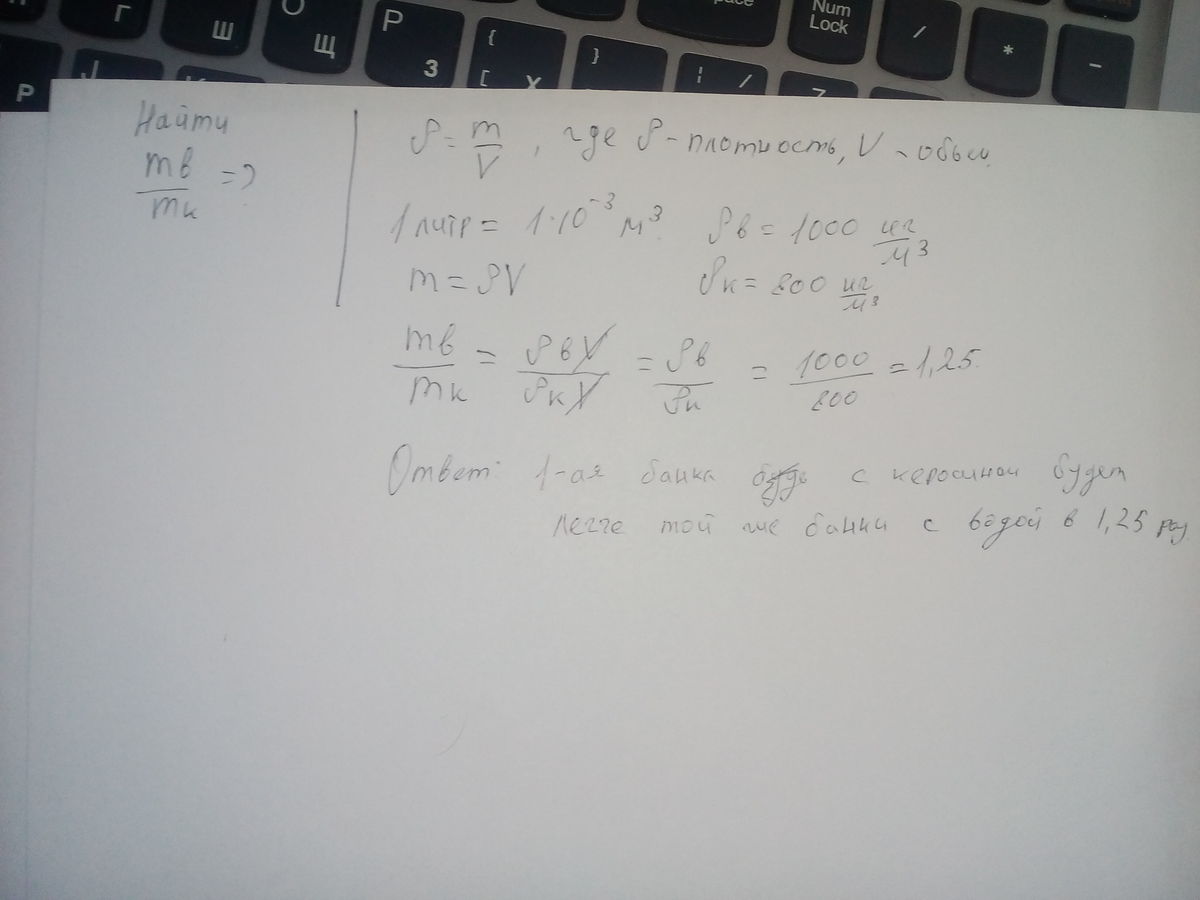 Г
Ш
О
Щ
Р
З
{
[
Х
}
Num
Lock
/
*
-
Р
Найти
mв/mк = ?
ρ = m/V, где ρ - плотность, V - объем.
1 литр = 1·10⁻³ м³ ρв = 1000 кг/м³
m = ρV ρк = 800 кг/м³
mв/mк = ρвV/ρкV = ρв/ρк = 1000/800 = 1,25.
Ответ: 1-ая банка с керосином будет
легче той же банки с водой в 1,25 раз.